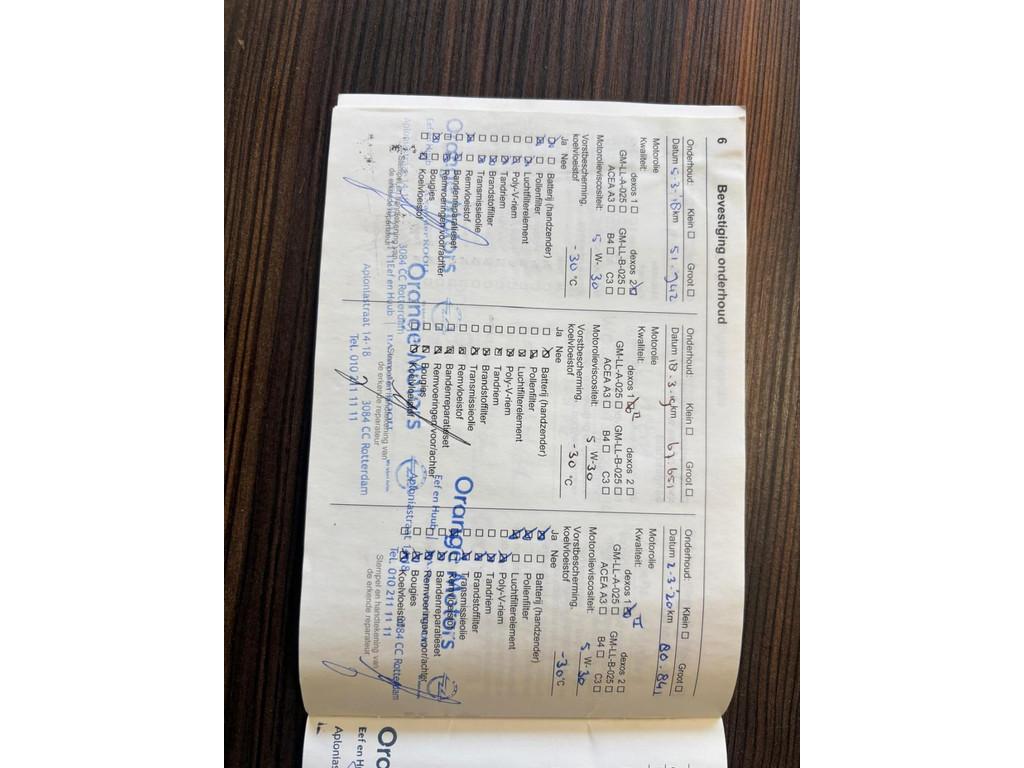 6
Bevestiging onderhoud
Onderhoud: Klein ☐ Groot ☐
Datum 5.3.'18 km 51.342
Motorolie
Kwaliteit: dexos 1 ☐ dexos 2 ☒
GM-LL-A-025 ☐ GM-LL-B-025 ☐
ACEA A3 ☐ B4 ☐ C3 ☐
Motorolieviscositeit: 5 W- 30
Vorstbescherming,
koelvloeistof -30 °C
Ja Nee
Batterij (handzender)
Pollenfilter
Luchtfilterelement
Poly-V-riem
Tandriem
Brandstoffilter
Transmissieolie
Remvloeistof
Bandenreparatieset
Remvoeringen voor/achter
Bougies
Koelvloeistof
Orange Motors
3084 CC Rotterdam
Onderhoud: Klein ☐ Groot ☐
Datum 18.3.19 km 67.651
Motorolie
Kwaliteit: dexos 1 ☒ II dexos 2 ☐
GM-LL-A-025 ☐ GM-LL-B-025 ☐
ACEA A3 ☐ B4 ☐ C3 ☐
Motorolieviscositeit: 5 W-30
Vorstbescherming,
koelvloeistof -30 °C
Ja Nee
Batterij (handzender)
Pollenfilter
Luchtfilterelement
Poly-V-riem
Tandriem
Brandstoffilter
Transmissieolie
Remvloeistof
Bandenreparatieset
Remvoeringen voor/achter
Bougies
Orange Motors
Eef en Huub
Stempel en handtekening van
de erkende reparateur
Aploniastraat 14-18 3084 CC Rotterdam
Tel. 010 211 11 11
Onderhoud: Klein ☐ Groot ☐
Datum 2-3-'20 km 80.841
Motorolie
Kwaliteit: dexos 1 ☒ II dexos 2 ☐
GM-LL-A-025 ☐ GM-LL-B-025 ☐
ACEA A3 ☐ B4 ☐ C3 ☐
Motorolieviscositeit: 5 W-30
Vorstbescherming,
koelvloeistof -30 °C
Ja Nee
Batterij (handzender)
Pollenfilter
Luchtfilterelement
Poly-V-riem
Tandriem
Brandstoffilter
Transmissieolie
Bandenreparatieset
Remvoeringen voor/achter
Bougies
Koelvloeistof
Orange Motors
Eef en Huub
Aploniastraat 14-18 3084 CC Rotterdam
Tel. 010 211 11 11
Stempel en handtekening van
de erkende reparateur
Or
Eef en H
Aplonias